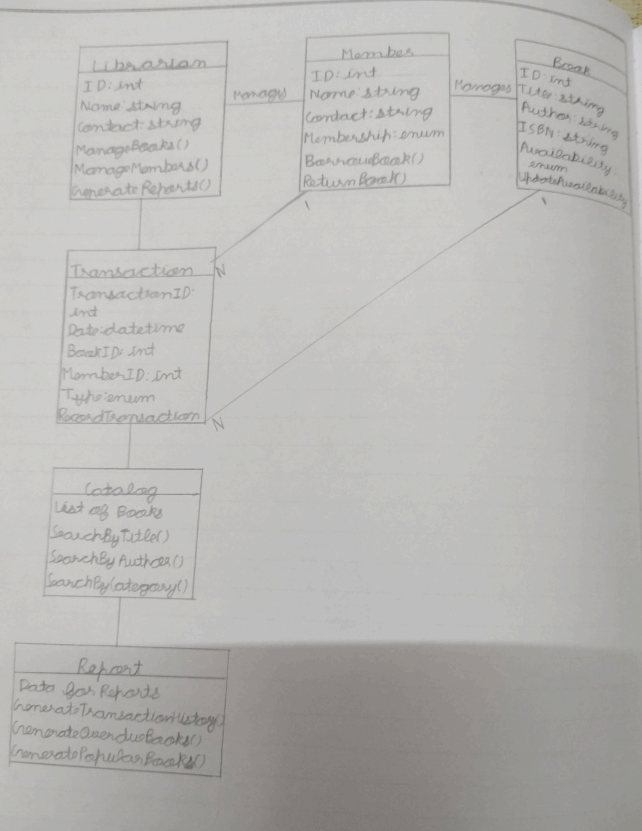 Librarian
ID: int
Name: string
Contact: string
ManageBooks()
ManageMembers()
GenerateReports()
Manages
Member
ID: int
Name: string
Contact: string
Membership: enum
BorrowBook()
ReturnBook()
1
Manages
Book
ID: int
Title: string
Author: string
ISBN: string
Availability:
enum
UpdateAvailability
1
Transaction
N
TransactionID:
int
Date: datetime
BookID: int
MemberID: int
Type: enum
RecordTransaction
N
Catalog
List of Books
SearchByTitle()
SearchByAuthor()
SearchByCategory()
Report
Data for Reports
GenerateTransactionHistory()
GenerateOverdueBooks()
GeneratePopularBooks()